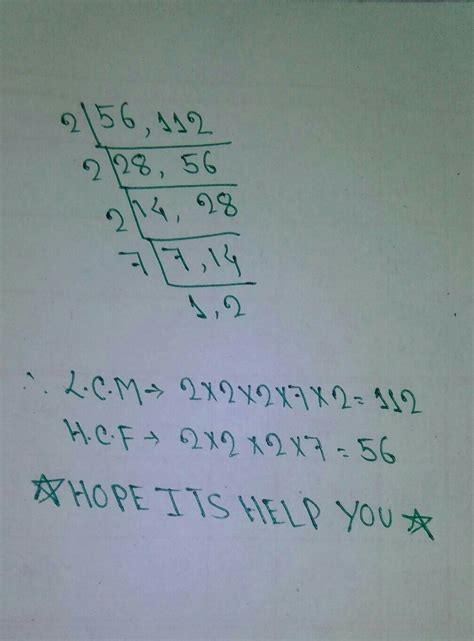 2 | 56, 112
2 | 28, 56
2 | 14, 28
7 | 7, 14
1, 2
∴ L.C.M → 2×2×2×7×2=112
H.C.F → 2×2×2×7=56
☆HOPE ITS HELP YOU☆